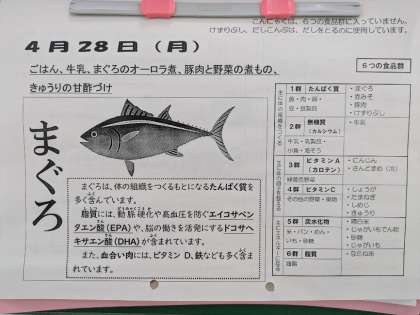 こんにゃくは、６つの食品群に入っていません。
けずりぶし、だしこんぶは、だしをとるのに使用しています。
４月２８日（月）
ごはん、牛乳、まぐろのオーロラ煮、豚肉と野菜の煮もの、
きゅうりの甘酢づけ
まぐろ
まぐろは、体の組織をつくるもとになるたんぱく質を
多く含んでいます。
脂質には、動脈硬化や高血圧を防ぐエイコサペン
タエン酸（EPA）や、脳の働きを活発にするドコサヘ
キサエン酸（DHA）が含まれています。
また、血合い肉には、ビタミン D、鉄なども多く含ま
れています。
６つの食品群
１群 たんぱく質
魚・肉・卵・
豆・豆製品
・まぐろ
・赤みそ
・豚肉
・けずりぶし
２群 無機質
（カルシウム）
牛乳・乳製品・
小魚・海そう
・牛乳
３群 ビタミンA
（カロテン）
緑黄色野菜
・にんじん
４群 ビタミンC
その他の野菜・果物
・しょうが
・たまねぎ
・しめじ
・きゅうり
５群 炭水化物
米・パン・めん・
いも・砂糖
・精白米
・じゃがいもでん粉
・砂糖
・じゃがいも
６群 脂質
油脂
・なたね油